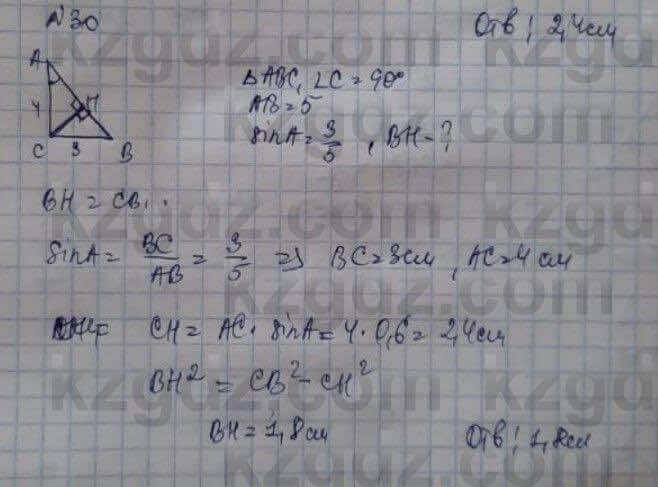 N30
Отв: 2,4см
A
4
H
C 3 B
ΔABC, ∠C = 90°
AB = 5
sinA = 3/5 , BH - ?
BH = CB
sinA = BC/AB = 3/5 => BC = 3см , AC = 4 см
CH = AC · sinA = 4 · 0,6 = 2,4см
BH² = CB² - CH²
BH = 1,8см
Отв: 1,8см
kzgdz.com